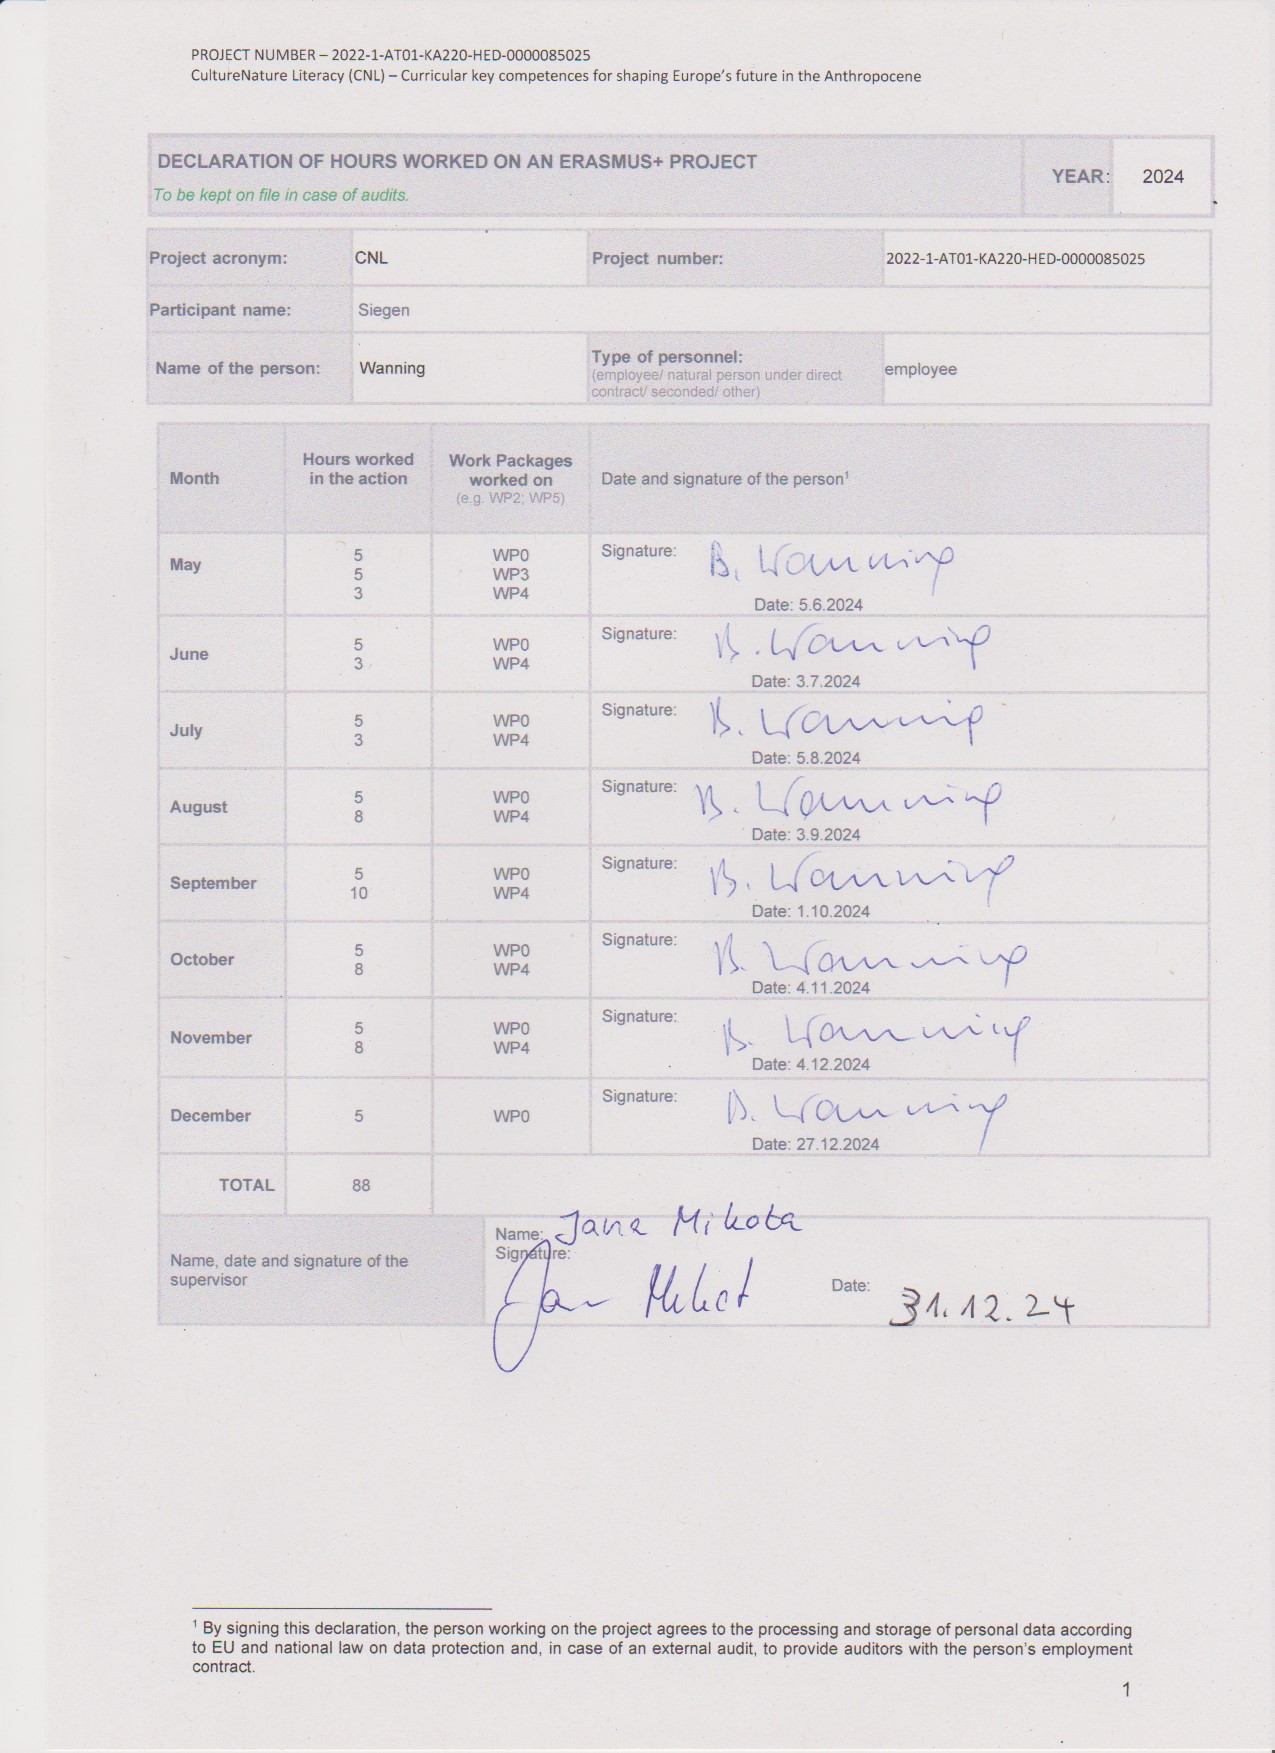 PROJECT NUMBER – 2022-1-AT01-KA220-HED-0000085025
CultureNature Literacy (CNL) – Curricular key competences for shaping Europe's future in the Anthropocene
DECLARATION OF HOURS WORKED ON AN ERASMUS+ PROJECT
To be kept on file in case of audits.
YEAR: 2024
Project acronym: CNL Project number: 2022-1-AT01-KA220-HED-0000085025
Participant name: Siegen
Name of the person: Wanning
Type of personnel:
(employee/ natural person under direct
contract/ seconded/ other)
employee
Month
Hours worked
in the action
Work Packages
worked on
(e.g. WP2; WP5)
Date and signature of the person¹
May
5 WP0
5 WP3
3 WP4
Signature: B. Wanning
Date: 5.6.2024
June
5 WP0
3 WP4
Signature: B. Wanning
Date: 3.7.2024
July
5 WP0
3 WP4
Signature: B. Wanning
Date: 5.8.2024
August
5 WP0
8 WP4
Signature: B. Wanning
Date: 3.9.2024
September
5 WP0
10 WP4
Signature: B. Wanning
Date: 1.10.2024
October
5 WP0
8 WP4
Signature: B. Wanning
Date: 4.11.2024
November
5 WP0
8 WP4
Signature: B. Wanning
Date: 4.12.2024
December
5 WP0
Signature: B. Wanning
Date: 27.12.2024
TOTAL 88
Name, date and signature of the
supervisor
Name: Jana Mikota
Signature:
Date: 31.12.24
¹ By signing this declaration, the person working on the project agrees to the processing and storage of personal data according
to EU and national law on data protection and, in case of an external audit, to provide auditors with the person's employment
contract.
1